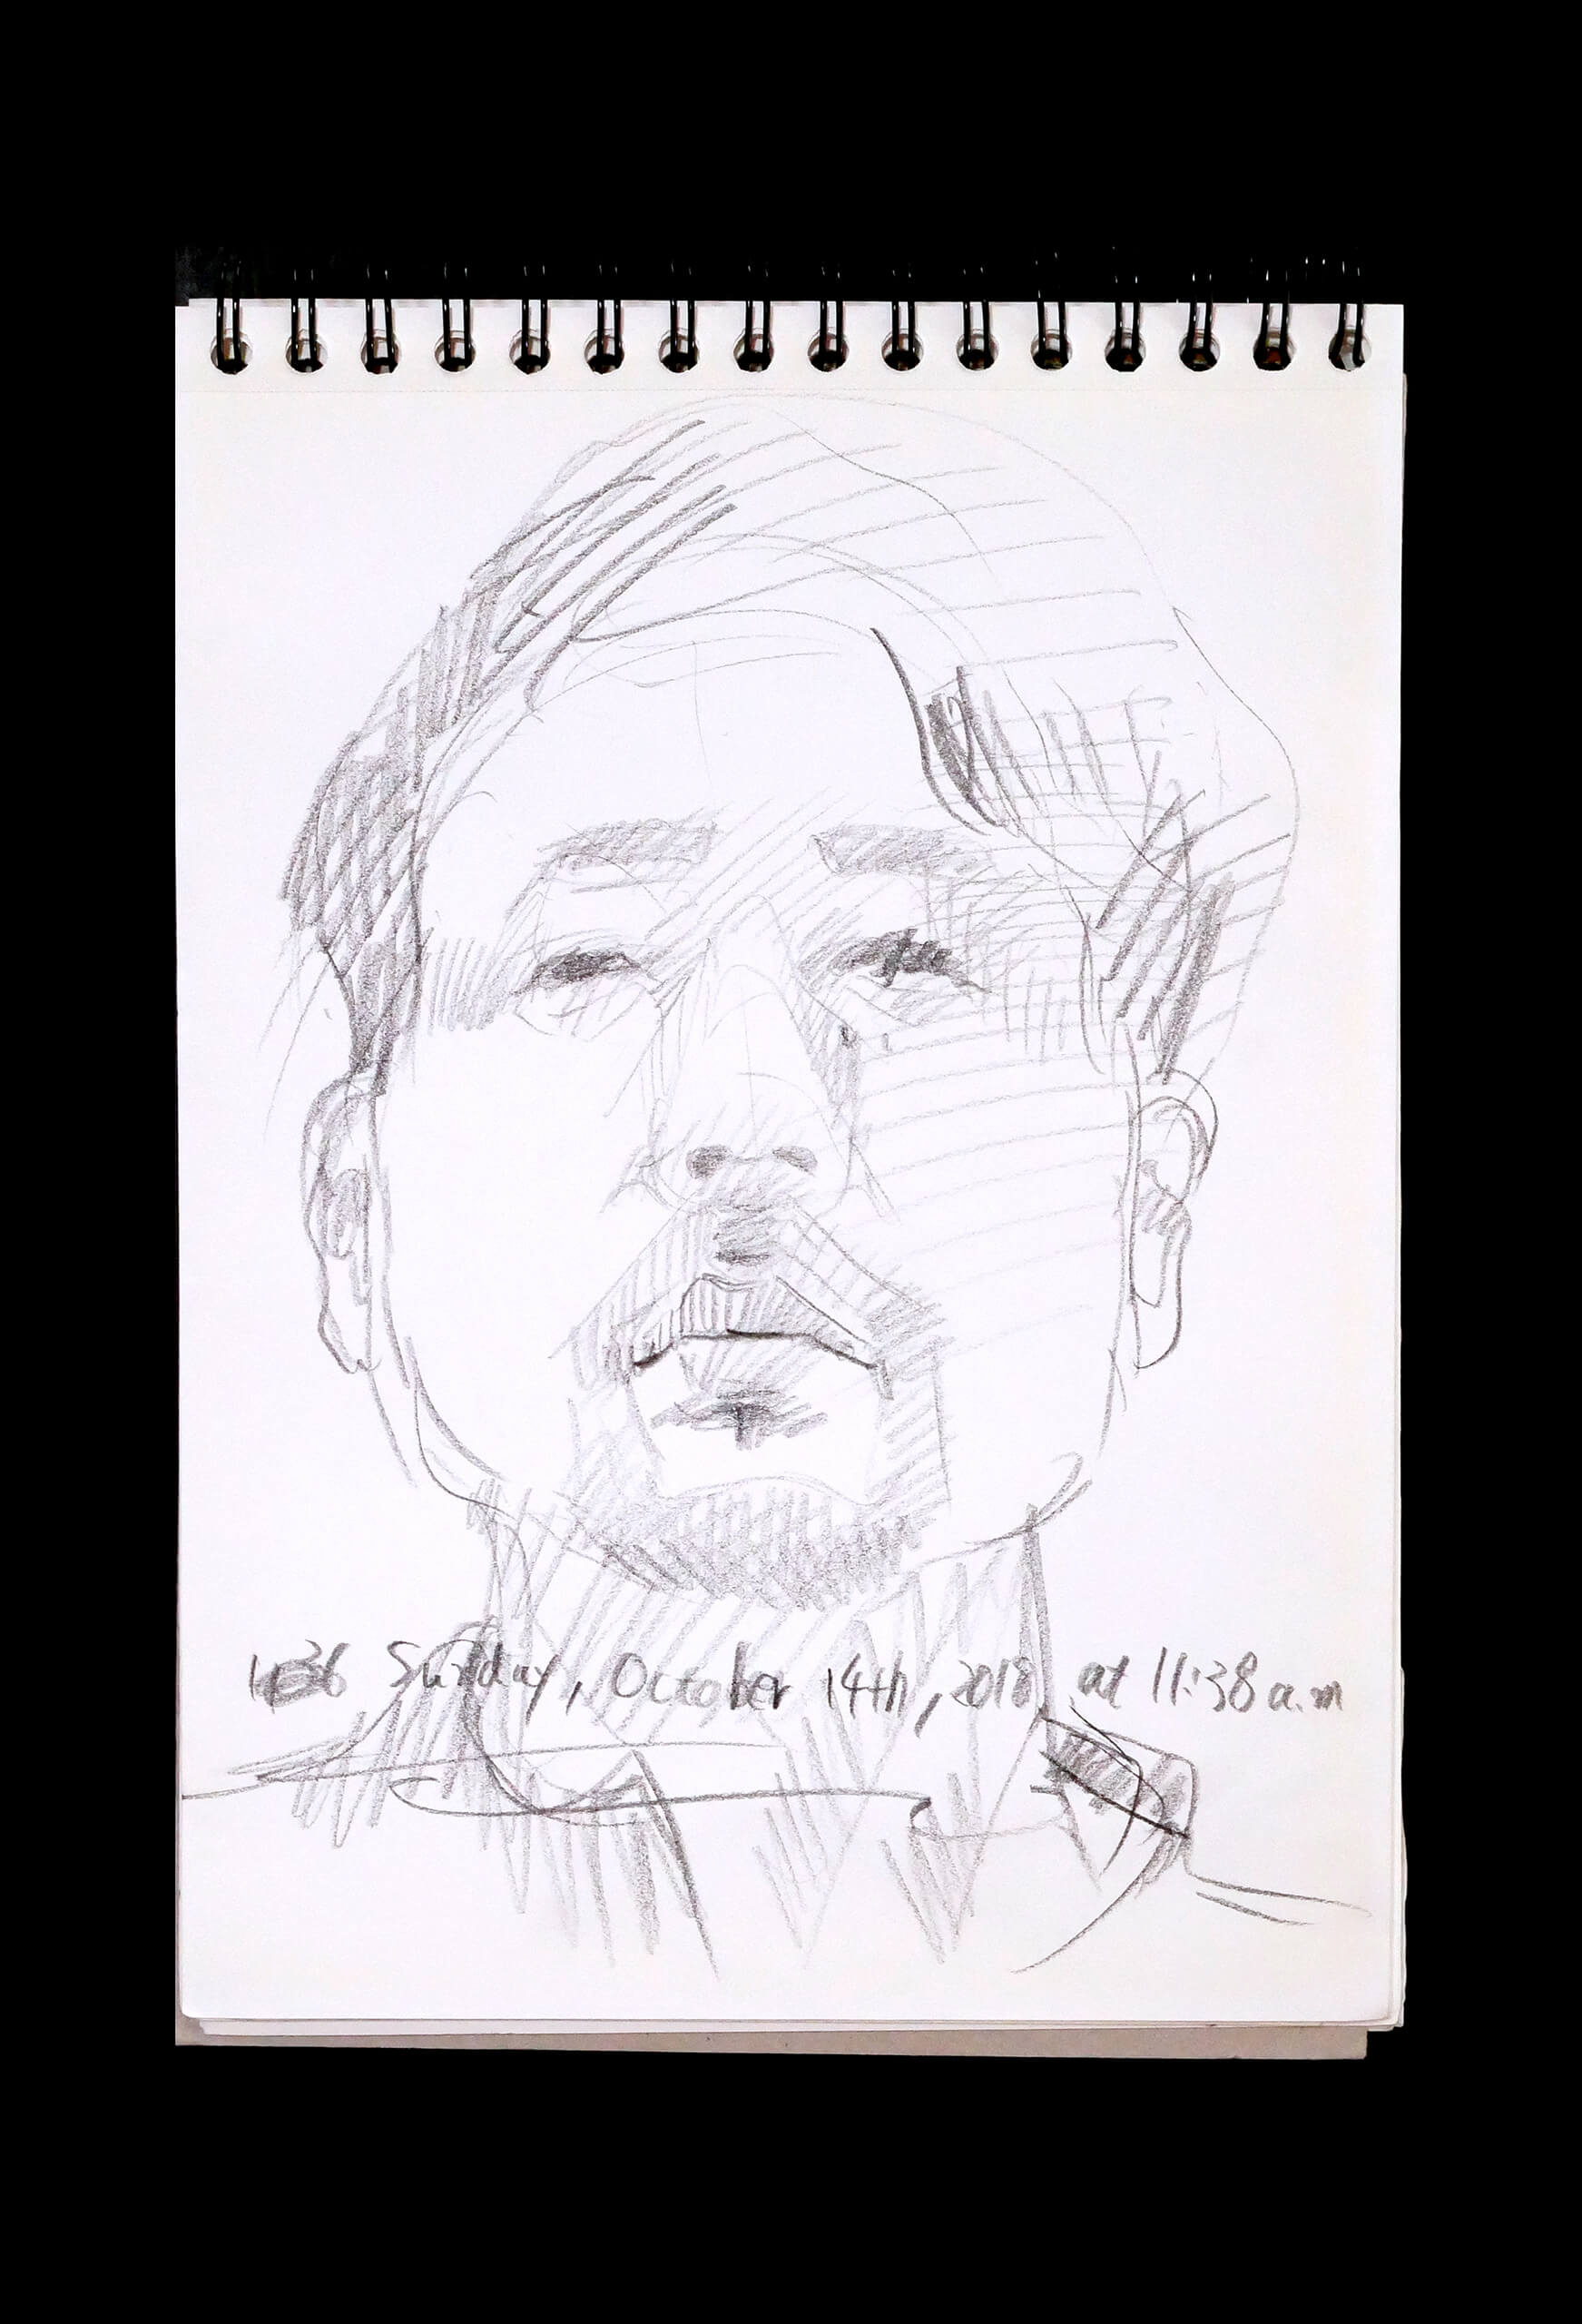 Sunday, October 14th, 2018, at 11:38 a.m